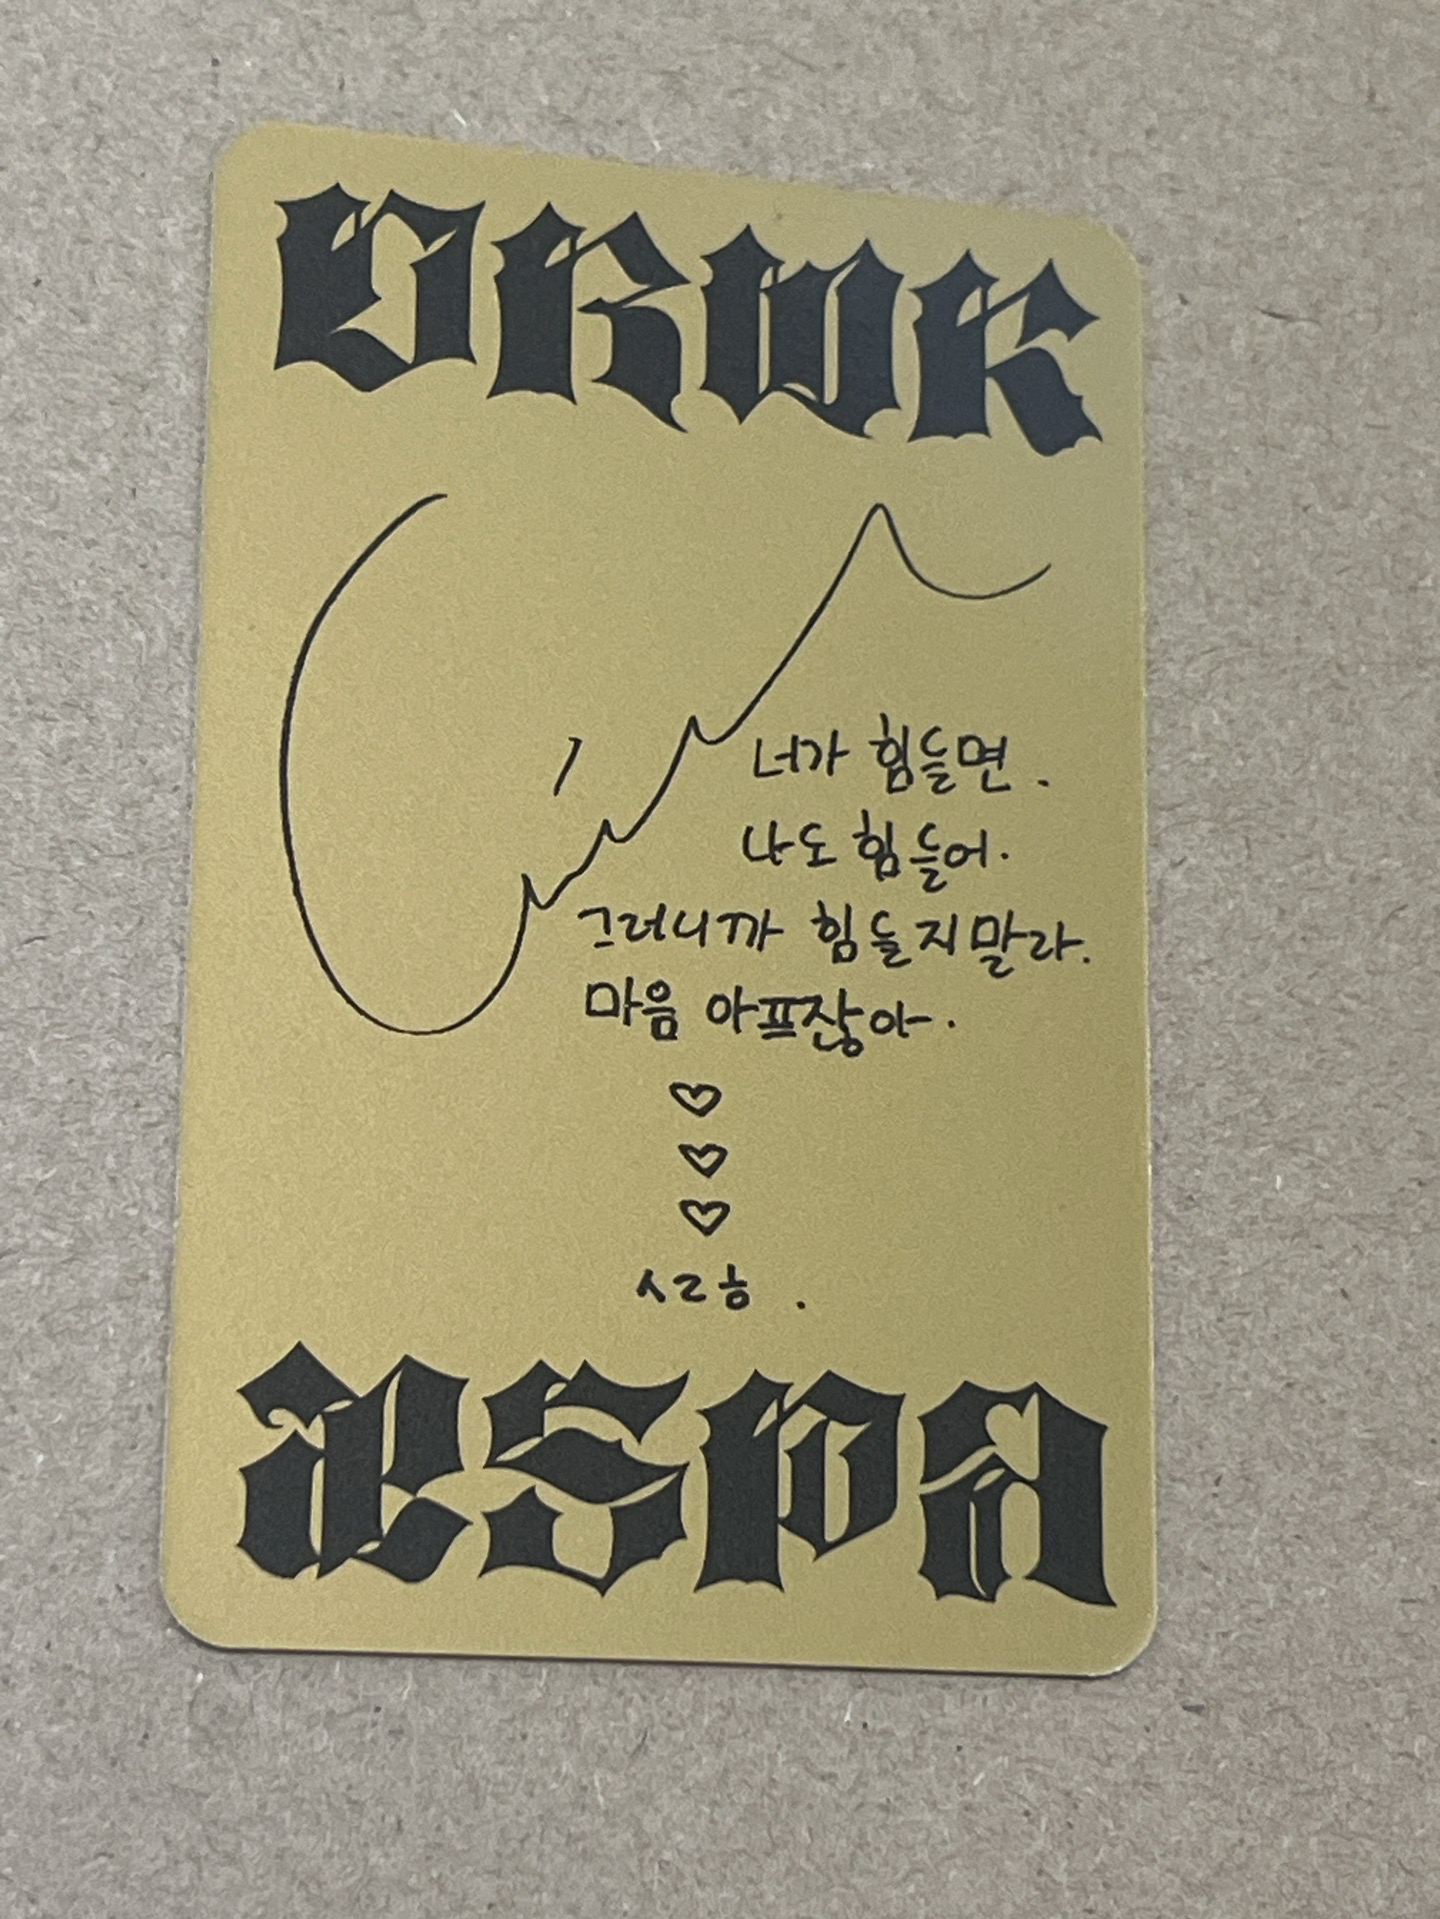 DRWK
너가 힘들면.
나도 힘들어.
그러니까 힘들지말라.
마음 아프잖아.
♡
♡
♡
ㅅㄹㅎ.
aespa